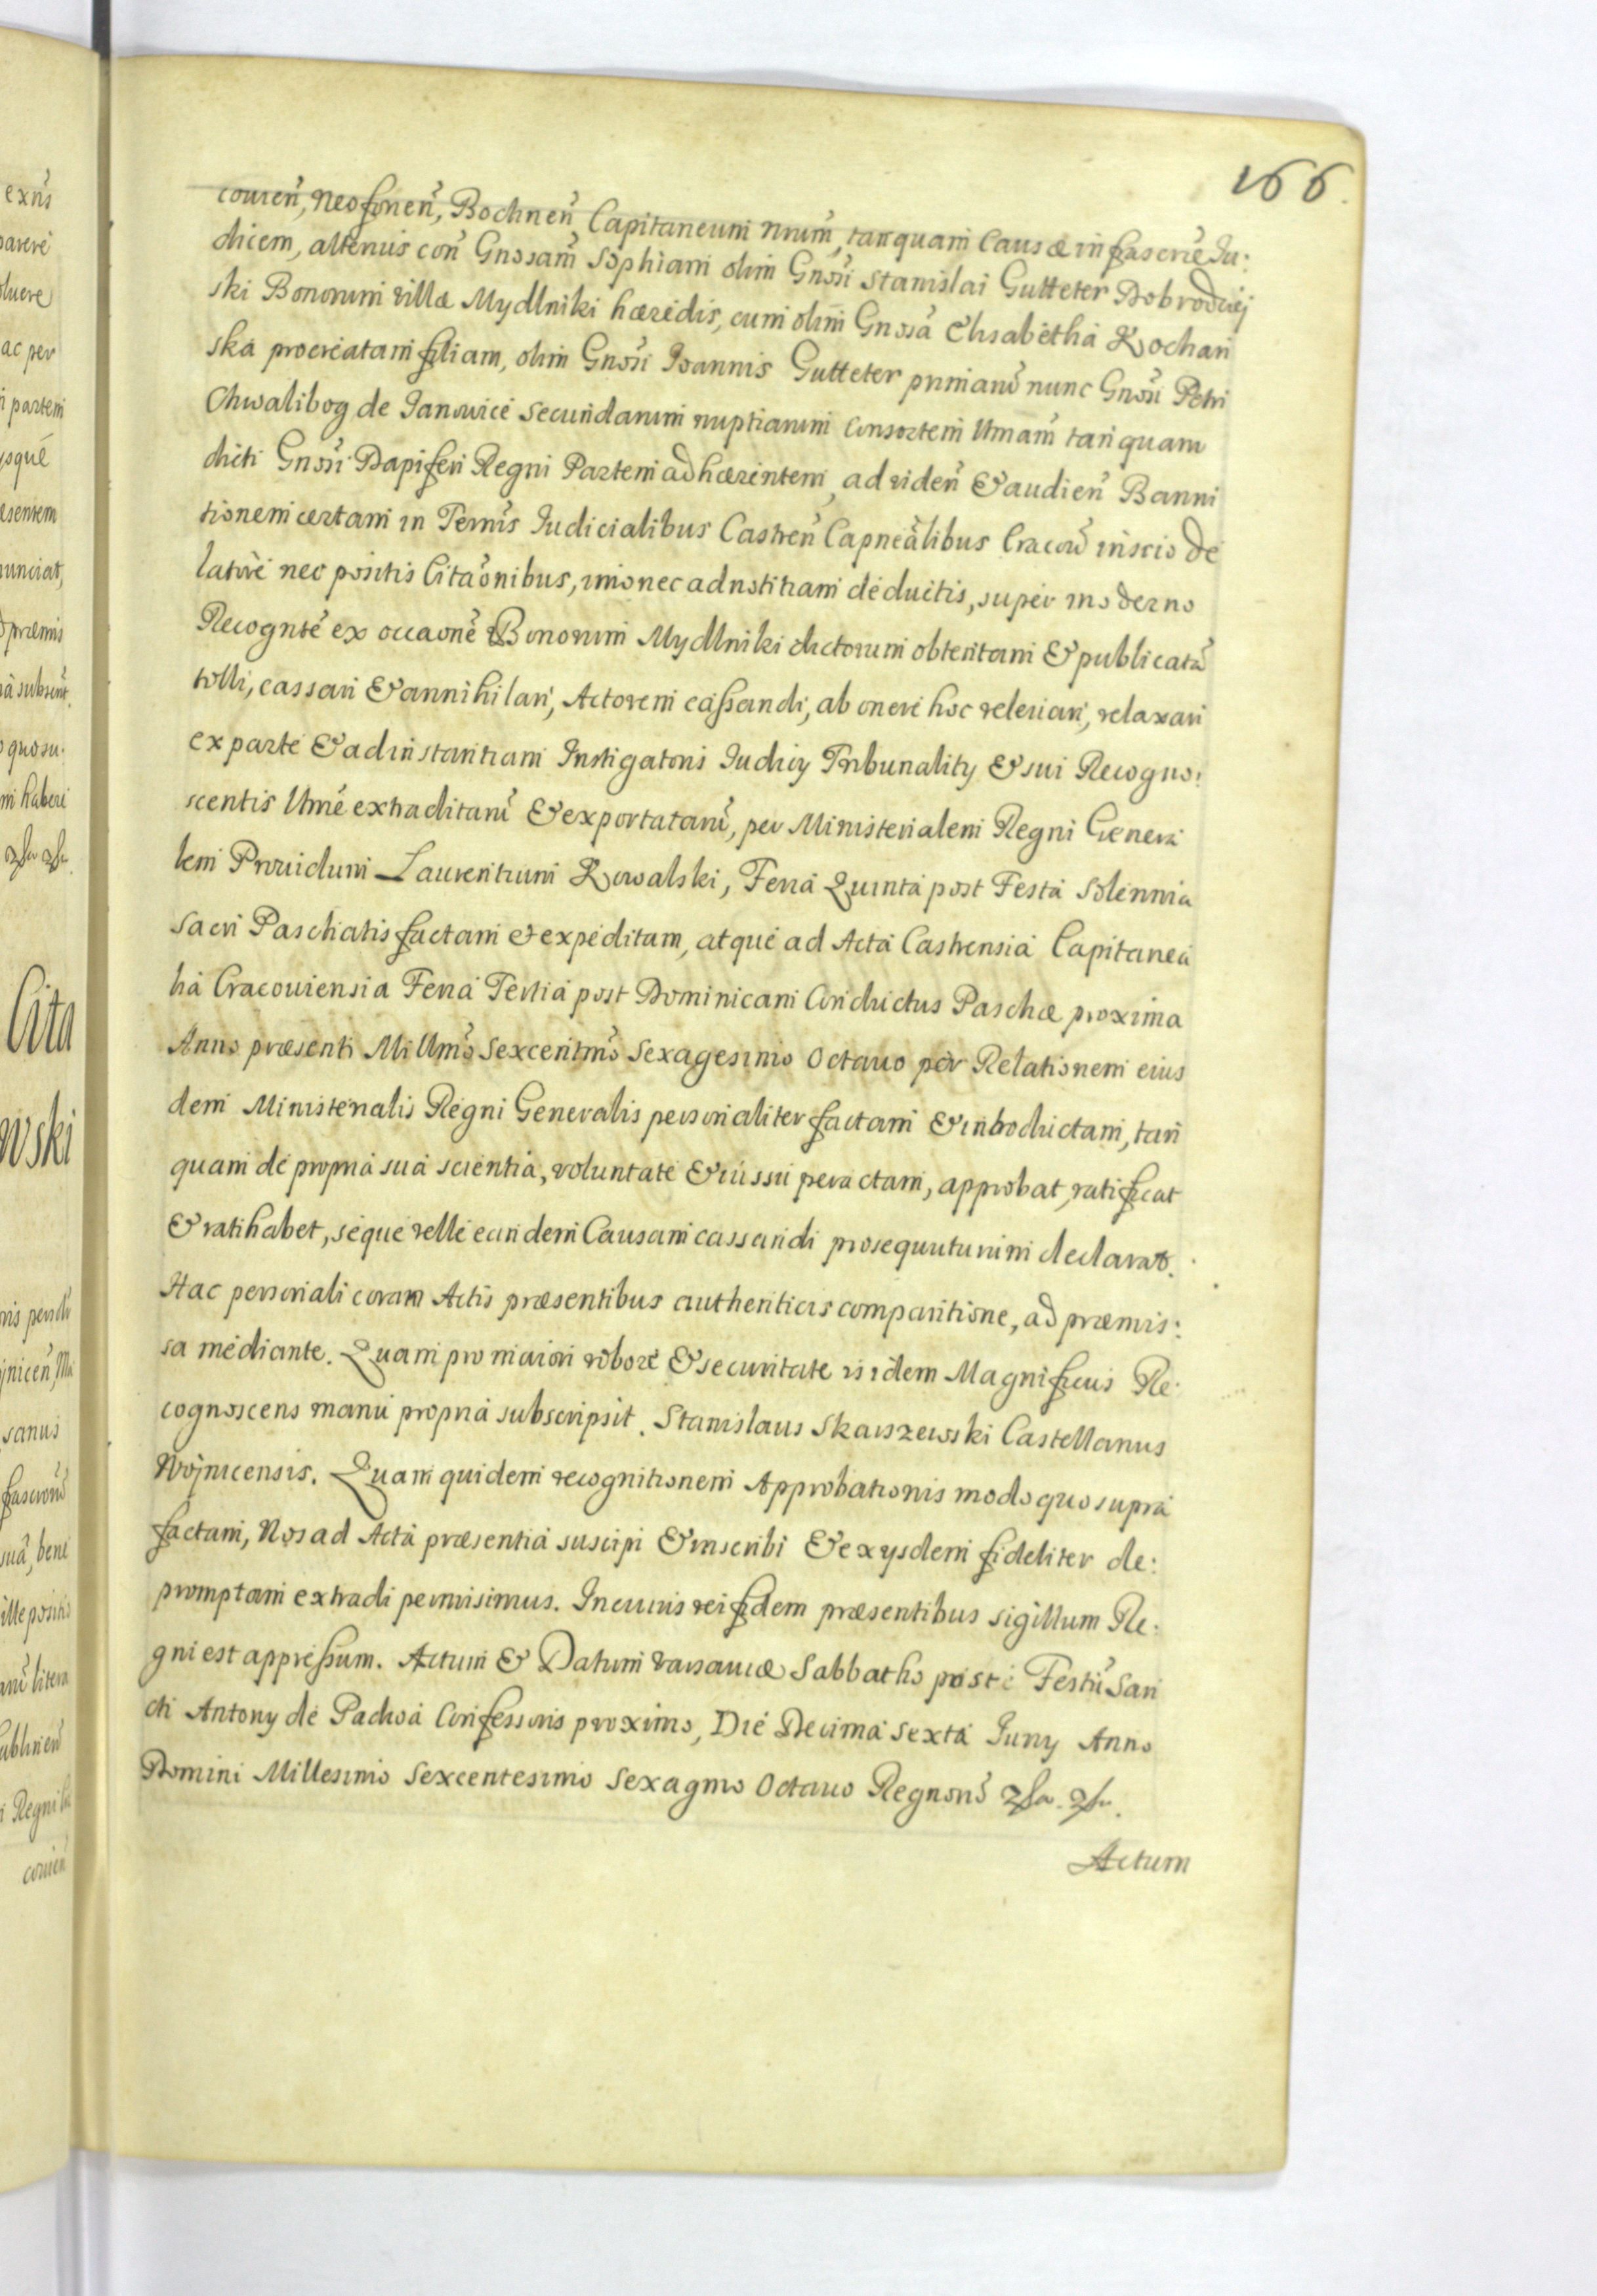 166.
couień, Neoforień, Bochneń, Capitaneum nrum, tanquam Causæ infrascrie Iu:
dicem, alterius coń Gnosam Sophiam olim Gnosi Stanislai Gutteter Dobrodziej
ski Bonorum villæ Mydlniki hæredis, cum olim Gnosa Elisabetha Kochan
ska procreatam filiam, olim Gnosi Ioannis Gutteter primarũ nunc Gnosi Petri
Chwalibog de Ianowice secundarum nuptiarum consortem Umam tanquam
dicti Gnosi Dapiferi Regni Partem adhærentem, ad videń & audień Banni
tionem certam in Termis Iudicialibus Castreń Capneàlibus Cracow inscio de
latore nec positis Citaonibus, imo nec ad notitiam deductis, super moderno
Recognte ex occaone Bonorum Mydlniki dictorum obtentam & publicatã
tolli, cassari & annihilari, Actorem cassandi, ab onere hoc releuari, relaxari
ex parte & ad instantiam Instigatoris Iudicÿ Tribunalitÿ & sui Recogno:
scentis Ume extraditarũ & exportatarũ, per Ministerialem Regni Genera
lem Prouidum Laurentium Kowalski, Feria Quinta post Festa Solennia
Sacri Paschatis factam & expeditam, atque ad Acta Castrensia Capitanea
lia Cracouiensia Feria Tertia post Dominicam Conductus Paschæ proxima
Anno præsenti Millmo Sexcentmo Sexagesimo Octauo per Relationem eius
dem Ministerialis Regni Generalis personaliter factam & introductam, tan
quam de propria sua scientia, voluntate & iussu peractam, approbat, ratificat
& ratihabet, seque velle eandem Causam cassandi prosequuturum declarat.
Hac personali coram Actis præsentibus authenticis comparitione, ad præmis:
sa mediante. Quam pro maiori robore & securitate isidem Magnificus Re:
cognoscens manu propria subscripsit. Stanislaus Skarszewski Castellanus
Woynicensis. Quam quidem recognitionem Approbationis modo quo supra
factam, Nos ad Acta præsentia suscipi & inscribi & ex ÿsdem fideliter de:
promptam extradi permisimus. In cuius rei fidem præsentibus sigillum Re:
gni est appressum. Actum & Datum Varsauiæ Sabbatho post Festũ San
cti Antonÿ de Padua Confessoris proximo, Die Decima Sexta Iunÿ Anno
Domini Millesimo Sexcentesimo Sexagmo Octauo Regnorũ
Actum